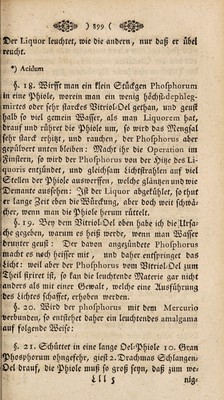 ( 899 (
Der Liquor leuchtet, wie die andern, nur daß er übel
reucht.
*) Acidum
§. 18. Wirfft man ein klein Stückgen Phosphorum
in eine Phiole, worein man ein wenig höchst-dephleg-
mirtes oder sehr starckes Vitriol-Oel gethan, und geust
halb so viel gemein Wasser, als man Liquorem hat,
drauf und rühret die Phiole um, so wird das Mengsal
sehr starck erhitzt, und rauchen, der Phosphorus aber
gepülvert unten bleiben: Macht ihr die Operation im
Finstern, so wird der Phosphorus von der Hitze des Li-
quoris entzündet, und gleichsam Lichtstrahlen auf viel
Stellen der Phiole auswerffen, welche gläntzen und wie
Demante aussehen: Ist der Liquor abgekühlet, so thut
er lange Zeit eben die Würckung, aber doch weit schwä-
cher, wenn man die Phiole herum rüttelt.
§. 19. Bey dem Vitriol-Oel oben habe ich die Ursa-
che gegeben, warum es heiß werde, wenn man Wasser
drunter geust: Der davon angezündete Phosphorus
macht es noch heisser mit, und daher entspringet das
Licht: weil aber der Phosphorus vom Vitriol-Oel zum
Theil figiret ist, so kan die leuchtende Materie gar nicht
anders als mit einer Gewalt, welche eine Ausführung
des Lichtes schaffet, erhoben werden.
§. 20. Wird der phosphorus mit dem Mercurio
verbunden, so entstehet daher ein leuchtendes amalgama
auf folgende Weise:
§. 21. Schüttet in eine lange Oel-Phiole 10. Gran
Phosphorum ohngefehr, giest 2. Drachmas Schlangen-
Oel drauf, die Phiole muß so groß seyn, daß zum we-
Lll 5 nig-